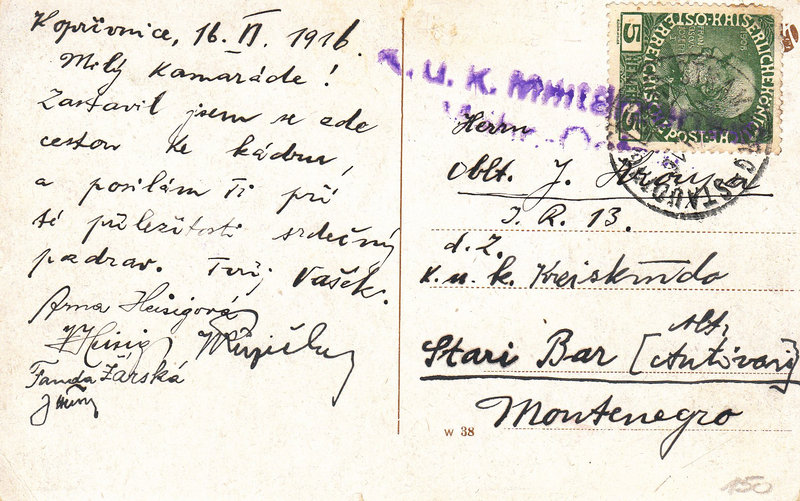 Kopřivnice, 16. VI. 1916.
Milý kamaráde!
Zastavil jsem se zde
cestou ke kádru,
a posílám Ti při
té příležitosti srdečný
pozdrav. Tvůj Vašek.
Anna Heisigová
Heisig
Fanda Žárská
5 HELLER 5
KAISERLICHE KÖNI
ÖSTERREICHISCHE POST
K. u. K. Militär
Herrn
Oblt. J. Kroupa
I. R. 13.
d. Z.
K. u. k. Kreiskmdo
Stari Bar [Alt, Antivari]
Montenegro
W 38
150